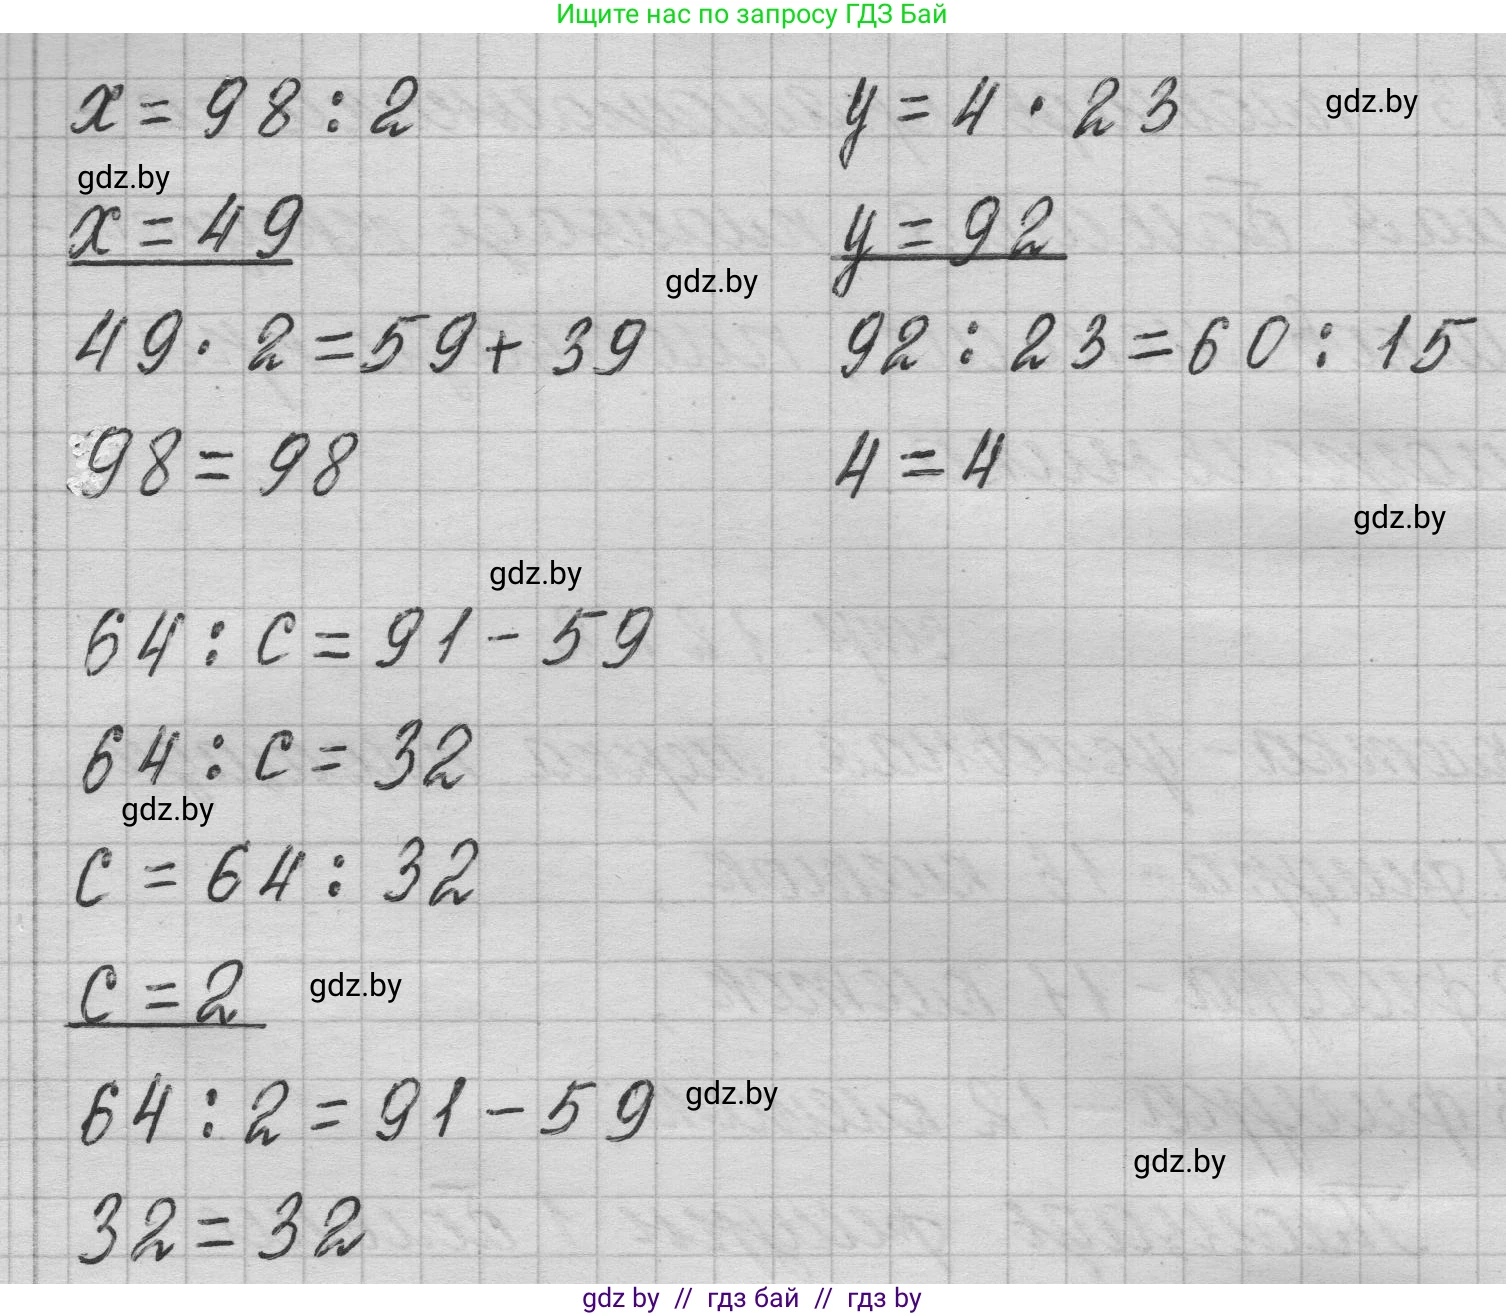 Ищите нас по запросу ГДЗ Бай
x = 98 : 2
y = 4 · 23
gdz.by
gdz.by
x = 49
y = 92
gdz.by
49 · 2 = 59 + 39
92 : 23 = 60 : 15
98 = 98
4 = 4
gdz.by
gdz.by
64 : c = 91 - 59
64 : c = 32
gdz.by
c = 64 : 32
c = 2
gdz.by
64 : 2 = 91 - 59
gdz.by
gdz.by
32 = 32
gdz by // гдз бай // гдз by